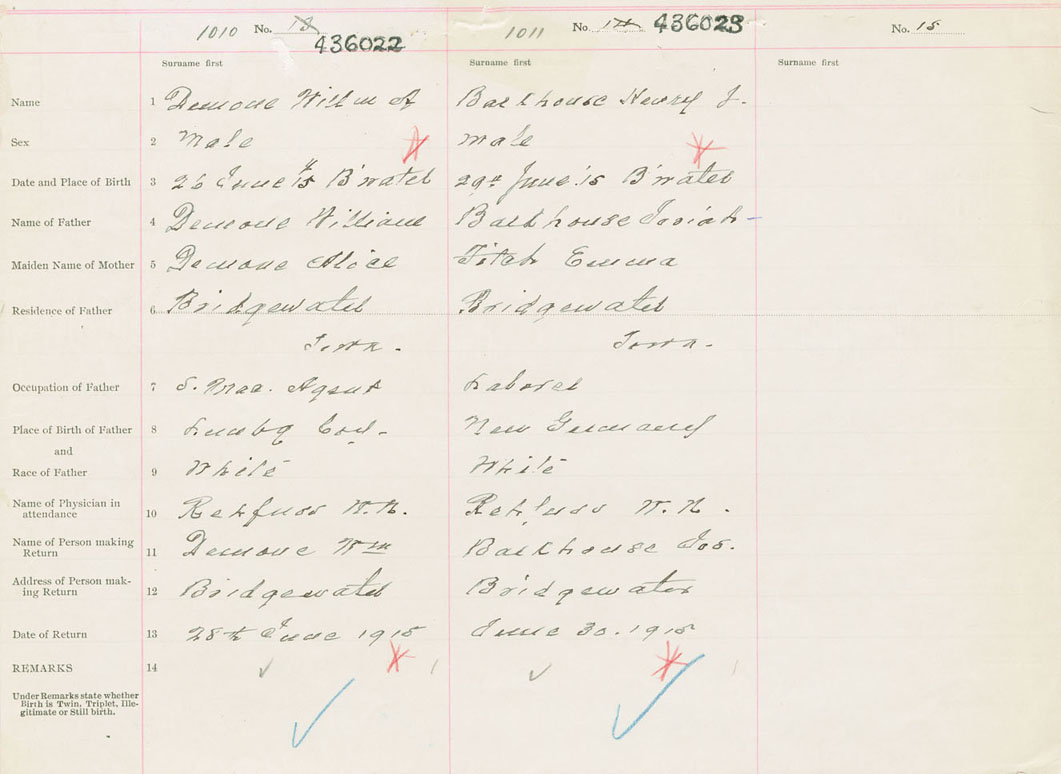 1010 No. 13 436022 1011 No. 14 436023 No. 15
Surname first Surname first Surname first
Name 1 Demone Willm A Backhouse Henry J.
Sex 2 Male male
Date and Place of Birth 3 26 June 15 B'water 29th June 15 B'water
Name of Father 4 Demone William Backhouse Josiah
Maiden Name of Mother 5 Demone Alice Emma
Residence of Father 6 Bridgewater Bridgewater
Town. Town.
Occupation of Father 7 S. Mac. Agent Laborer
Place of Birth of Father 8 Lunbg Co. New Germany
and
Race of Father 9 White White
Name of Physician in
attendance 10 Rehfuss W.N. Rehfuss W.N.
Name of Person making
Return 11 Demone Wm Backhouse Jos.
Address of Person mak-
ing Return 12 Bridgewater Bridgewater
Date of Return 13 28th June 1915 June 30. 1915
REMARKS 14
Under Remarks state whether
Birth is Twin, Triplet, Ille-
gitimate or Still birth.